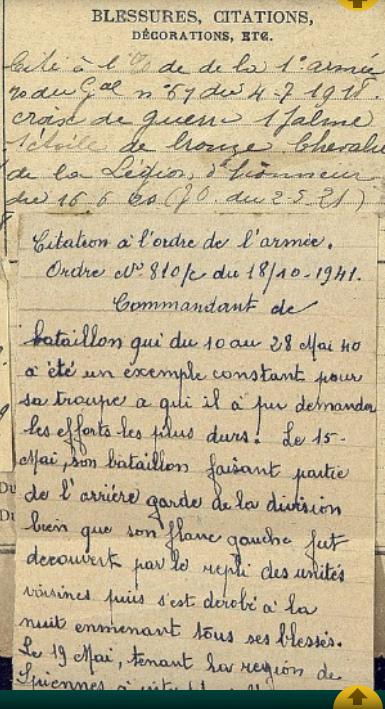 BLESSURES, CITATIONS,
DÉCORATIONS, ETC.
Cité à l'O/ de de la 1e armée
no du Gal n° 67 du 4-7 1918.
croix de guerre 1 palme
1 étoile de bronze Chevalier
de la Légion d'honneur
du 16 6 20 (JO. du 2 5 21)
Citation à l'ordre de l'armée.
Ordre No 810/c du 18/10-1941.
Commandant de
bataillon qui du 10 au 28 Mai 40
a été un exemple constant pour
sa troupe a qui il à pu demander
les efforts les plus durs. Le 15-
Mai, son bataillon faisant partie
de l'arrière garde de la division
bien que son flanc gauche fut
decouvert par le repli des unités
voisines puis s'est dérobé à la
nuit emmenant tous ses blessés.
Le 19 Mai, tenant la region de
Spiennes à